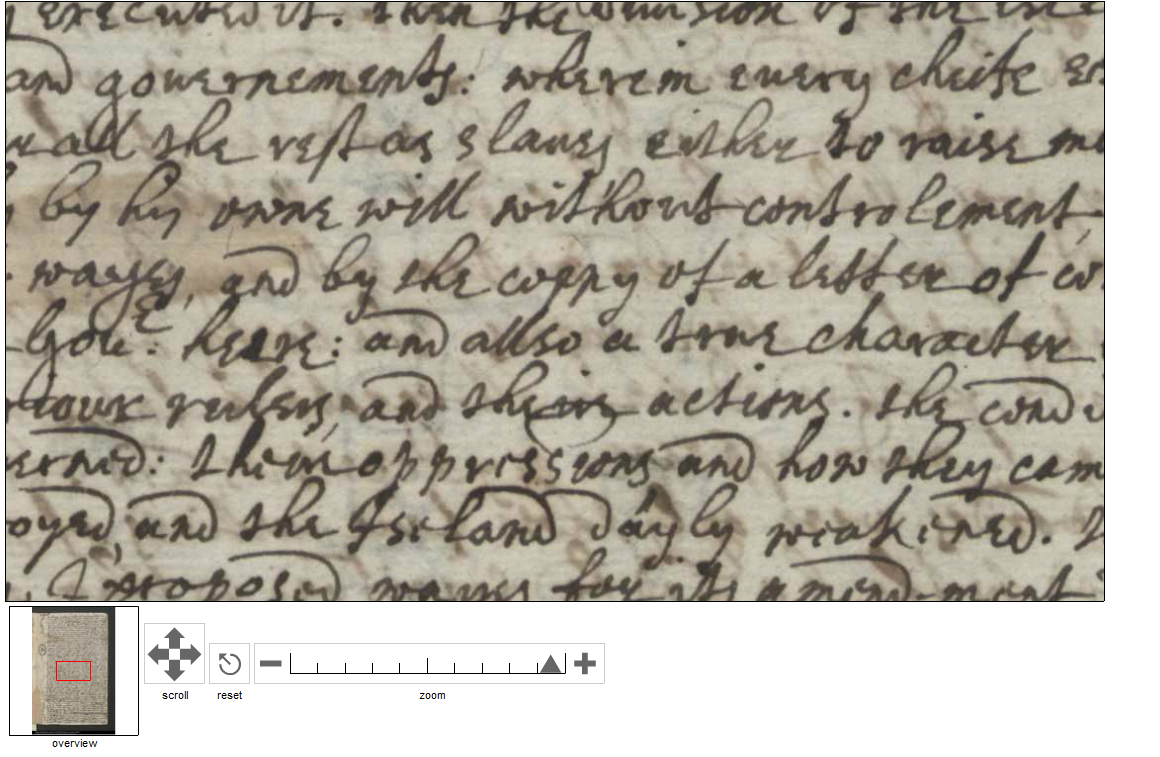 executed it. then the division of the Isle
and governements: wherein every cheife
all the rest as slaves either to raise
by his owne will without controlement,
wayes, and by the coppy of a letter of
Gou: heere: and allso a true character
our rulers, and their actions. the
erned: their oppressions and how they cam
oyed, and the Iseland dayly weakened.
I proposed wayes for its amend-ment
scroll
reset
zoom
overview